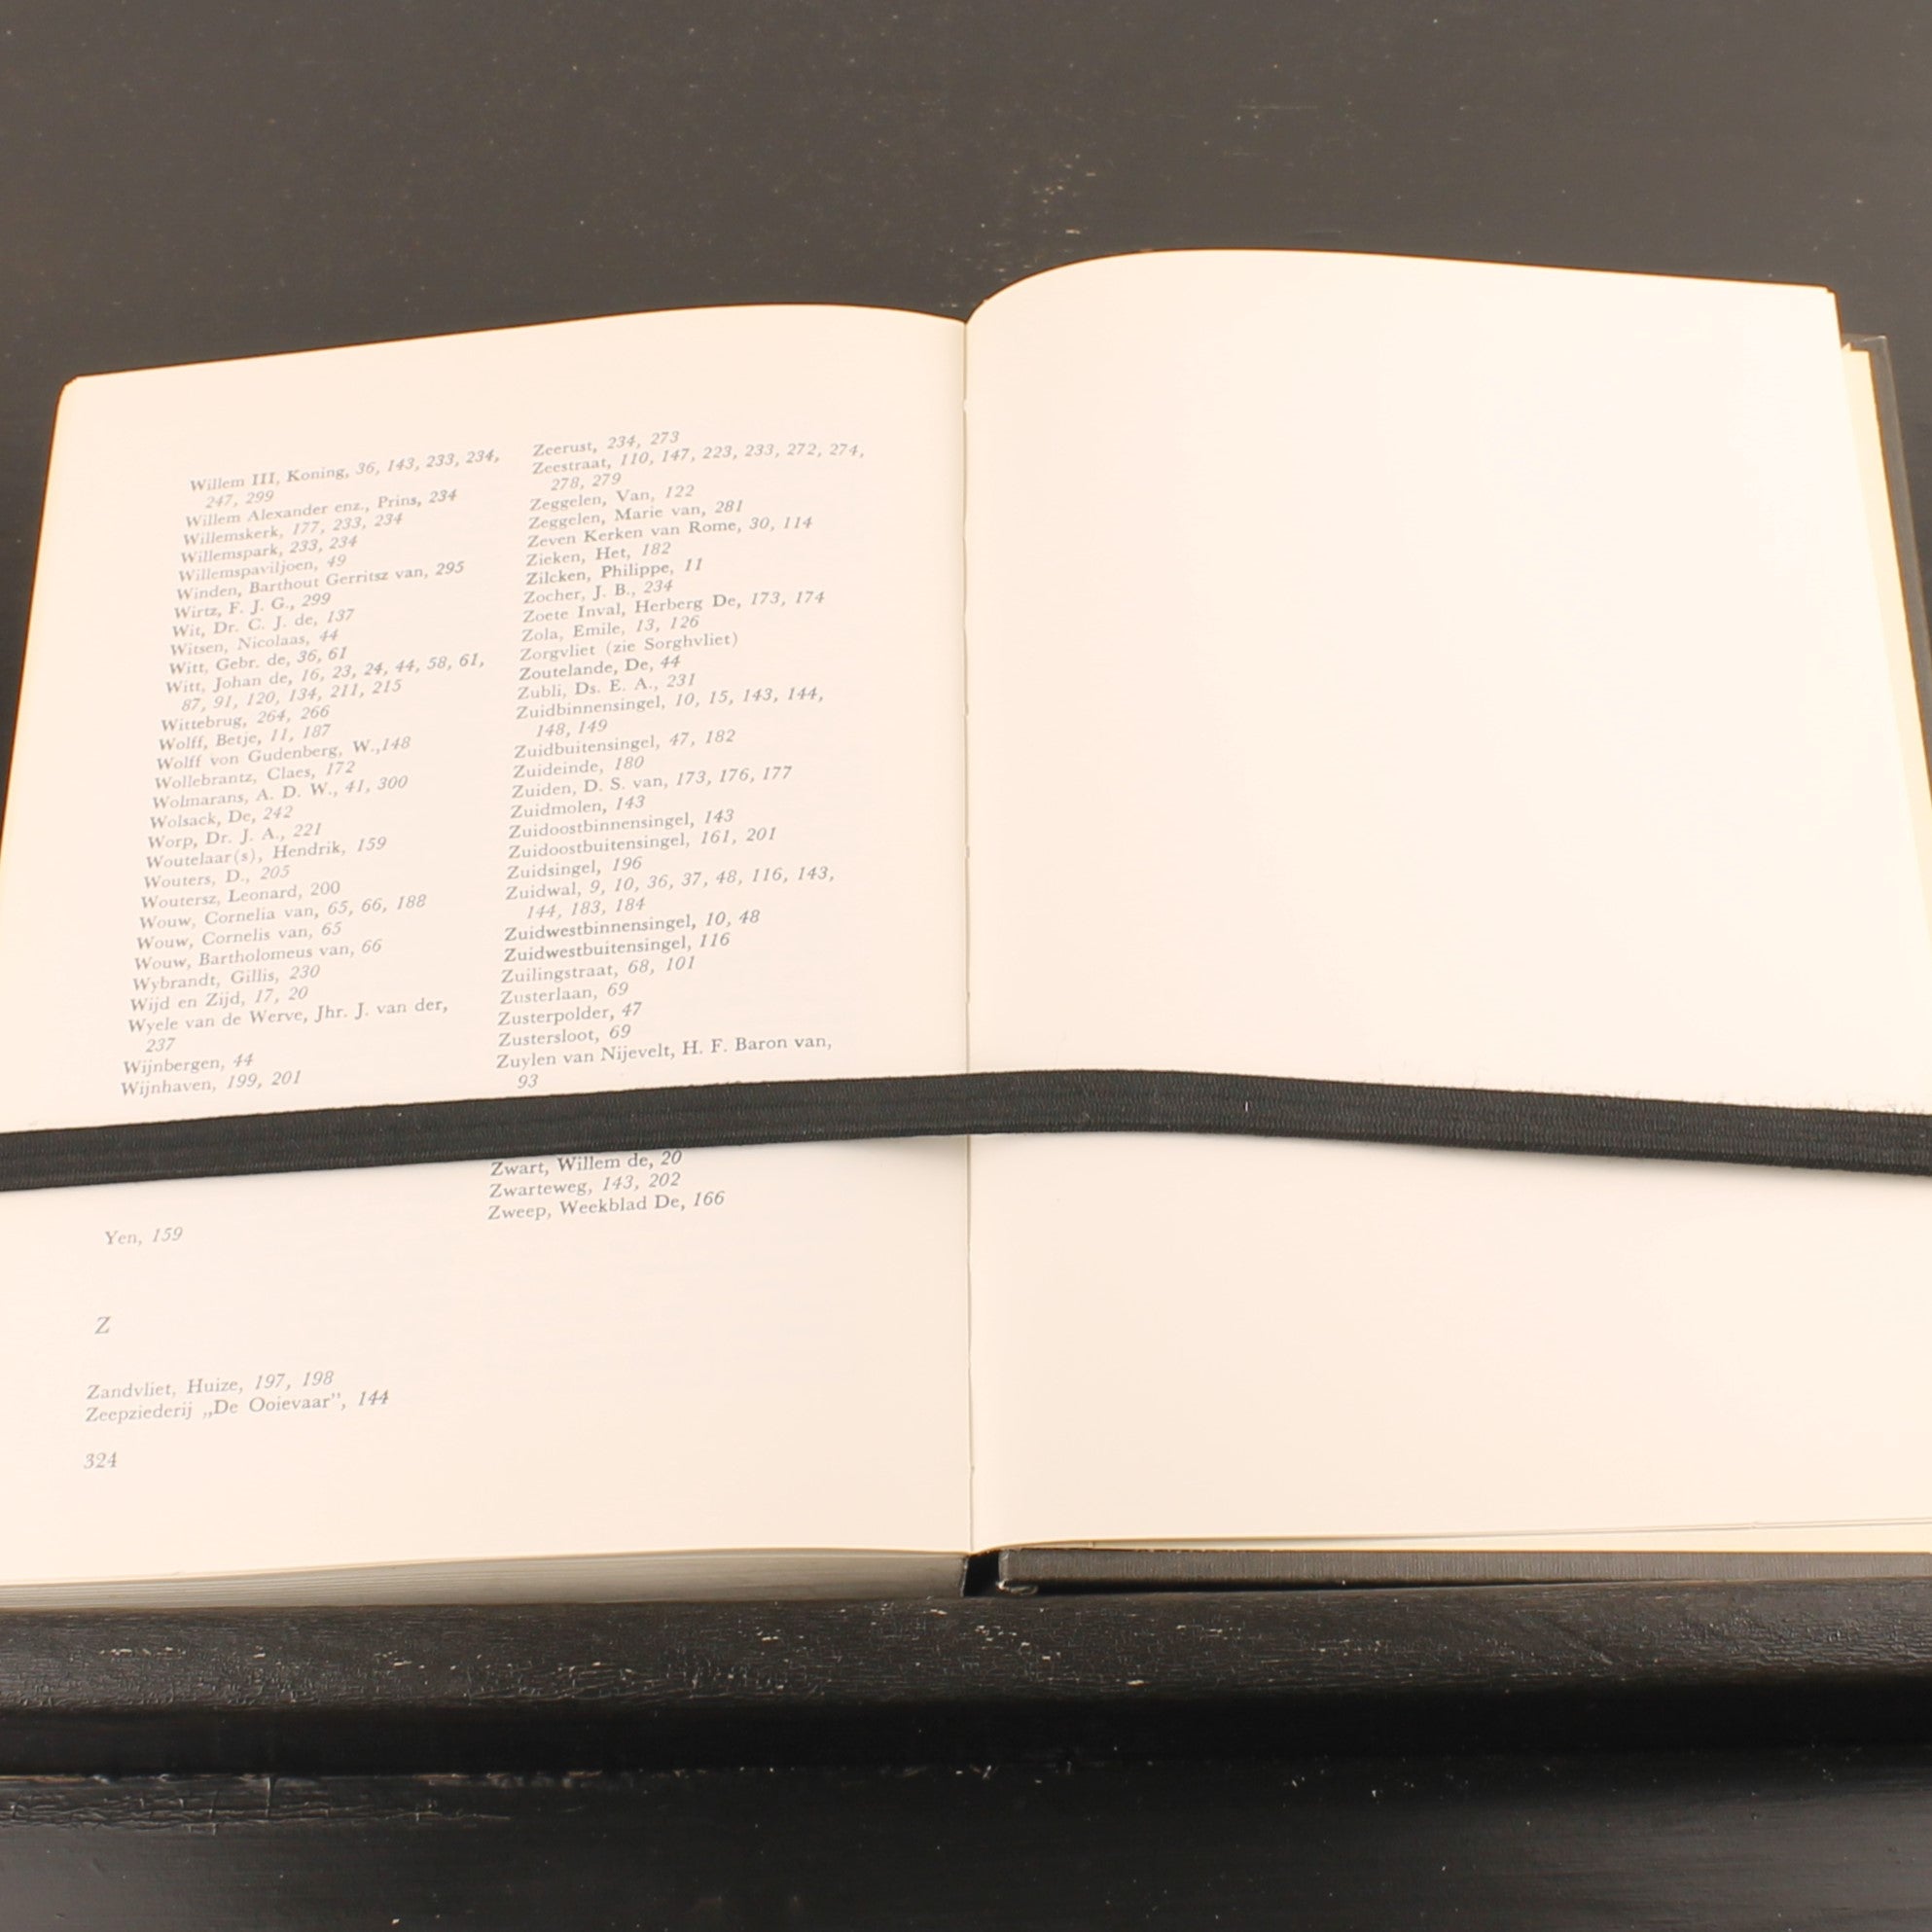 Willem III, Koning, 36, 143, 233, 234,
247, 299
Willem Alexander enz., Prins, 234
Willemskerk, 177, 233, 234
Willemspark, 233, 234
Willemspaviljoen, 49
Winden, Barthout Gerritsz van, 295
Wirtz, F. J. G., 299
Wit, Dr. C. J. de, 137
Witsen, Nicolaas, 44
Witt, Gebr. de, 36, 61
Witt, Johan de, 16, 23, 24, 44, 58, 61,
87, 91, 120, 134, 211, 215
Wittebrug, 264, 266
Wolff, Betje, 11, 187
Wolff von Gudenberg, W.,148
Wollebrantz, Claes, 172
Wolmarans, A. D. W., 41, 300
Wolsack, De, 242
Worp, Dr. J. A., 221
Woutelaar(s), Hendrik, 159
Wouters, D., 205
Woutersz, Leonard, 200
Wouw, Cornelia van, 65, 66, 188
Wouw, Cornelis van, 65
Wouw, Bartholomeus van, 66
Wybrandt, Gillis, 230
Wijd en Zijd, 17, 20
Wyele van de Werve, Jhr. J. van der,
237
Wijnbergen, 44
Wijnhaven, 199, 201
Yen, 159
Z
Zandvliet, Huize, 197, 198
Zeepziederij „De Ooievaar”, 144
324
Zeerust, 234, 273
Zeestraat, 110, 147, 223, 233, 272, 274,
278, 279
Zeggelen, Van, 122
Zeggelen, Marie van, 281
Zeven Kerken van Rome, 30, 114
Zieken, Het, 182
Zilcken, Philippe, 11
Zocher, J. B., 234
Zoete Inval, Herberg De, 173, 174
Zola, Emile, 13, 126
Zorgvliet (zie Sorghvliet)
Zoutelande, De, 44
Zubli, Ds. E. A., 231
Zuidbinnensingel, 10, 15, 143, 144,
148, 149
Zuidbuitensingel, 47, 182
Zuideinde, 180
Zuiden, D. S. van, 173, 176, 177
Zuidmolen, 143
Zuidoostbinnensingel, 143
Zuidoostbuitensingel, 161, 201
Zuidsingel, 196
Zuidwal, 9, 10, 36, 37, 48, 116, 143,
144, 183, 184
Zuidwestbinnensingel, 10, 48
Zuidwestbuitensingel, 116
Zuilingstraat, 68, 101
Zusterlaan, 69
Zusterpolder, 47
Zustersloot, 69
Zuylen van Nijevelt, H. F. Baron van,
93
Zwart, Willem de, 20
Zwarteweg, 143, 202
Zweep, Weekblad De, 166